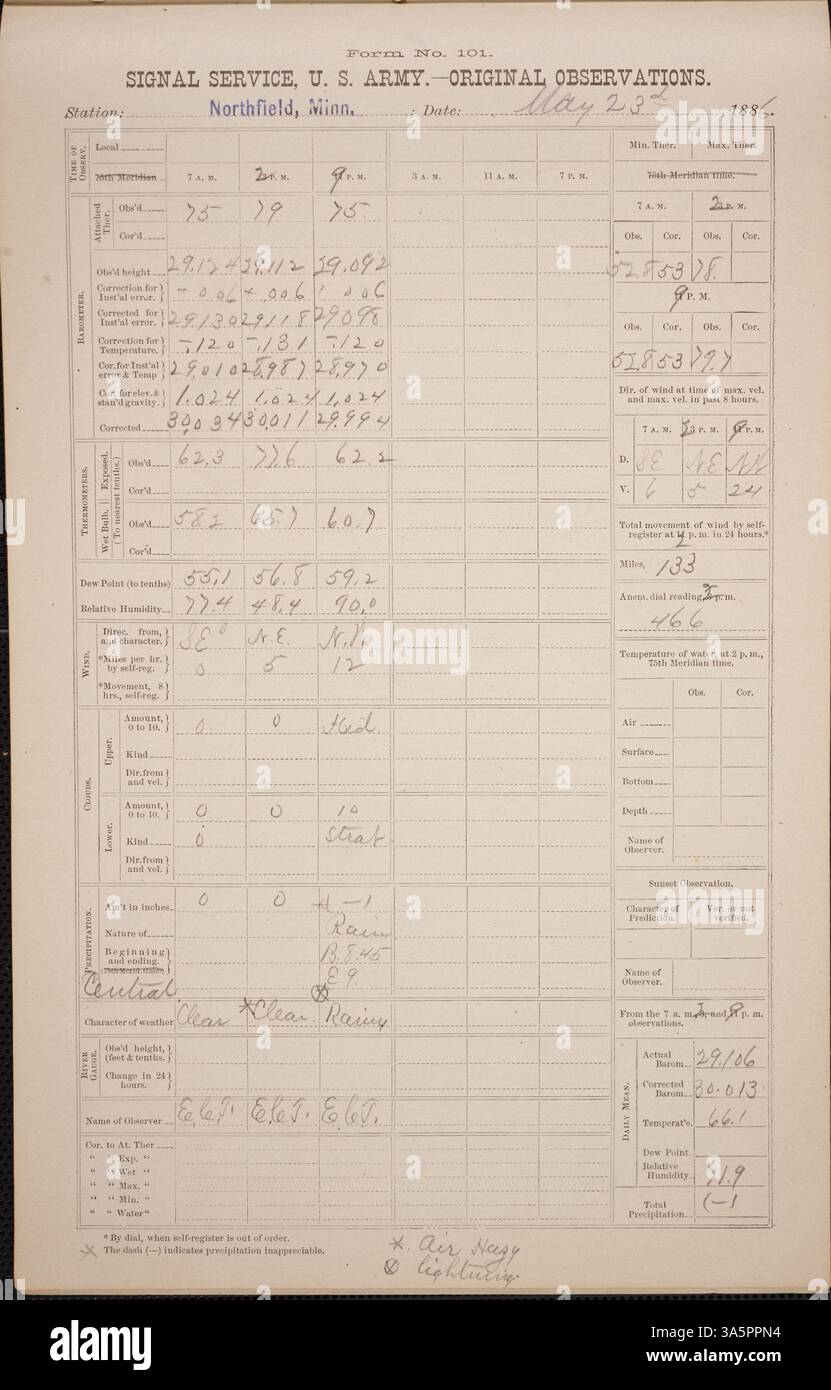 Form No. 101.
SIGNAL SERVICE, U. S. ARMY.—ORIGINAL OBSERVATIONS.
Station: Northfield, Minn. : Date: May 23d, 1886.
TIME OF OBSERV.
Local
75th Meridian 7 A. M. 2 P. M. 9 P. M. 3 A. M. 11 A. M. 7 P. M.
BAROMETER.
Attached Ther.
Obs'd 75 79 75
Cor'd
Obs'd height 29.124 29.112 29.092
Correction for Inst'al error. +.006 +.006 .006
Corrected for Inst'al error. 29.130 29.118 29.098
Correction for Temperature. -.120 -.131 -.120
Cor. for Inst'al error & Temp 29.010 28.987 28.970
Cor. for elev. & stan'd gravity. 1.024 1.024 1.024
Corrected 30.034 30.011 29.994
THERMOMETERS.
Wet Bulb. || Exposed.
(To nearest tenths.)
Obs'd 62.3 77.6 62.2
Cor'd
Obs'd 58.2 65.7 60.7
Cor'd
Dew Point (to tenths) 55.1 56.8 59.2
Relative Humidity 77.4 48.4 90.0
WIND.
Direc. from, and character. SE 0 N.E. N.W.
*Miles per hr. by self-reg. 0 5 12
*Movement, 8 hrs., self-reg.
CLOUDS.
Upper.
Amount, 0 to 10. 0 0 Hid.
Kind
Dir. from and vel.
Lower.
Amount, 0 to 10. 0 0 10
Kind 0 Strat
Dir. from and vel.
PRECIPITATION.
Am't in inches 0 0 —1
Nature of Rain
Beginning and ending. B. 8.45
(75th Merid. time.) E 9.
Central
Character of weather Clear *Clear. Rainy
RIVER GAUGE.
Obs'd height, (feet & tenths.)
Change in 24 hours.
Name of Observer E.C.T. E.C.T. E.C.T.
Cor. to At. Ther
" " Exp. "
" " Wet "
" " Max. "
" " Min. "
" " Water "
Min. Ther. Max. Ther.
75th Meridian time.
7 A. M. 2 P. M.
Obs. Cor. Obs. Cor.
52.8 53 78.
9 P. M.
Obs. Cor. Obs. Cor.
52.8 53 79.7
Dir. of wind at time of max. vel. and max. vel. in past 8 hours.
7 A. M. 2 P. M. 9 P. M.
D. SE NE NW
V. 6 5 24
Total movement of wind by self-register at 2 p. m. in 24 hours.*
Miles, 133
Anem. dial reading, 2 p. m.
466
Temperature of water, at 2 p. m., 75th Meridian time.
Obs. Cor.
Air
Surface
Bottom
Depth
Name of Observer.
Sunset Observation.
Character of Prediction. Ver. or not verified.
Name of Observer.
From the 7 a. m., 2, and 9 p. m. observations.
DAILY MEAN.
Actual Barom. 29.106
Corrected Barom. 30.013
Temperat'e. 66.1
Dew Point.
Relative Humidity. 71.9
Total Precipitation. (—1
*By dial, when self-register is out of order.
The dash (—) indicates precipitation inappreciable.
*. Air Hazy
⊗ lightning
alamy
Image ID: 3A5PPN4
www.alamy.com